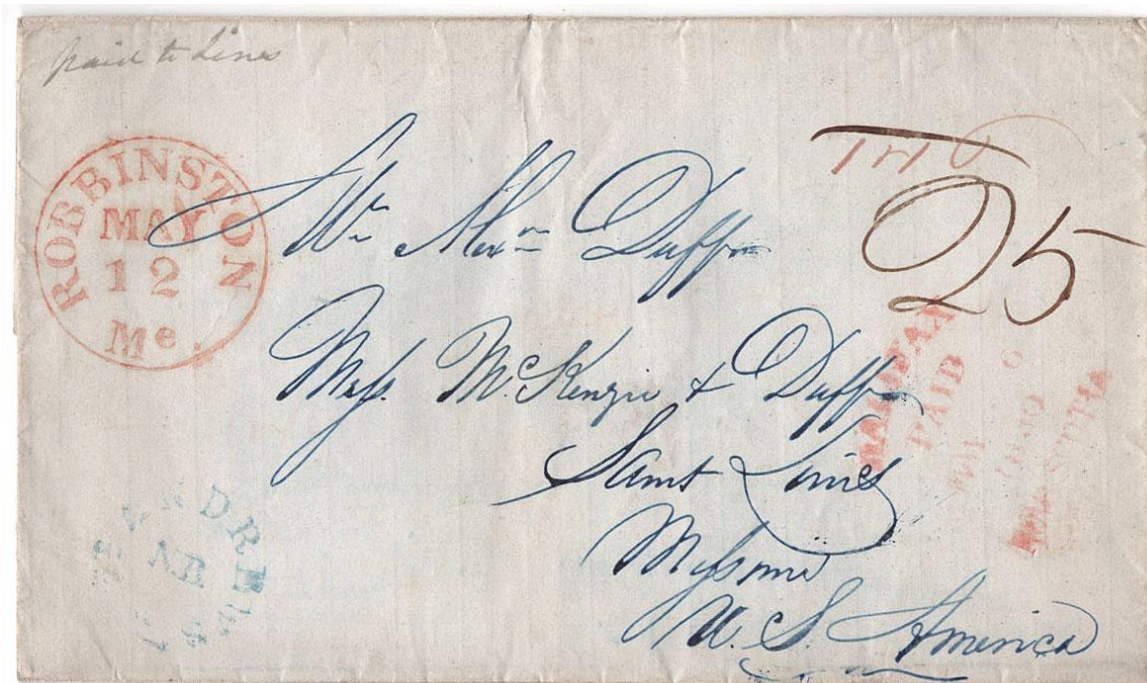 paid to Lines
ROBBINSTON
MAY
12
Me.
25
Wm Alexr Duff
Mess. McKenzie & Duff
Saint Louis
Missouri
U. S. America
HALIFAX
PAID
N.B.